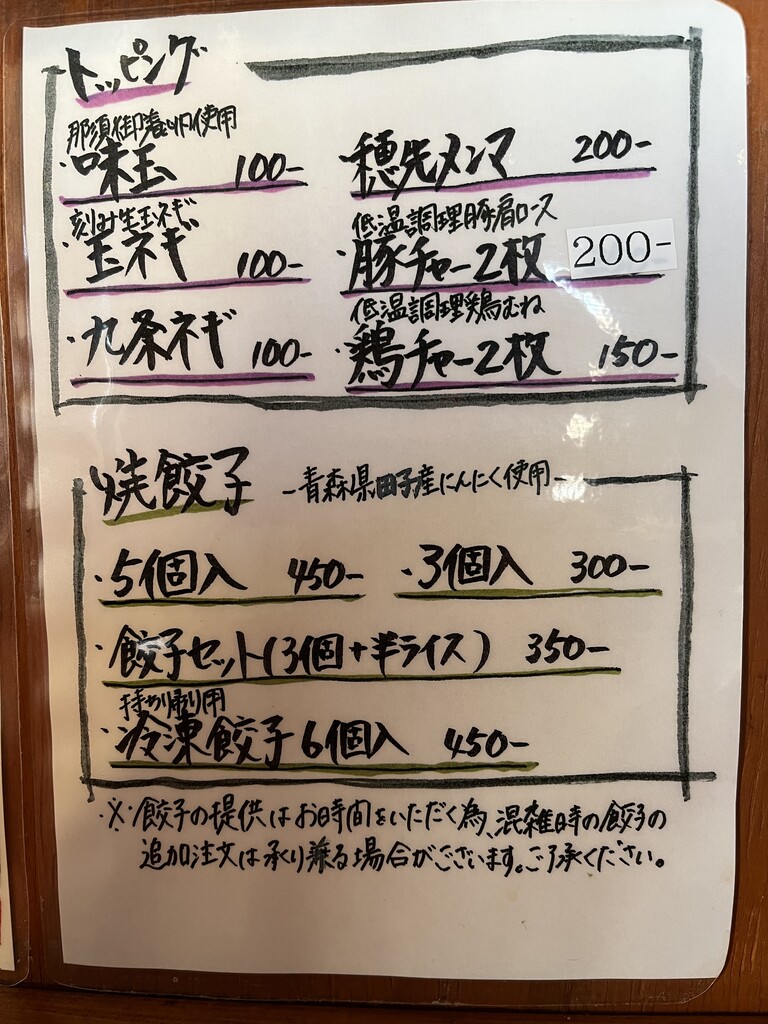 トッピング
那須御養卵使用
・味玉 100-
穂先メンマ 200-
刻み生玉ネギ
・玉ネギ 100-
低温調理豚肩ロース
・豚チャー2枚 200-
・九条ネギ 100-
低温調理鶏むね
・鶏チャー2枚 150-
焼餃子 -青森県田子産にんにく使用-
・5個入 450- ・3個入 300-
・餃子セット(3個+半ライス) 350-
持ち帰り用
・冷凍餃子6個入 450-
※餃子の提供はお時間をいただく為、混雑時の餃子の
追加注文は承り兼る場合がございます。ご了承ください。